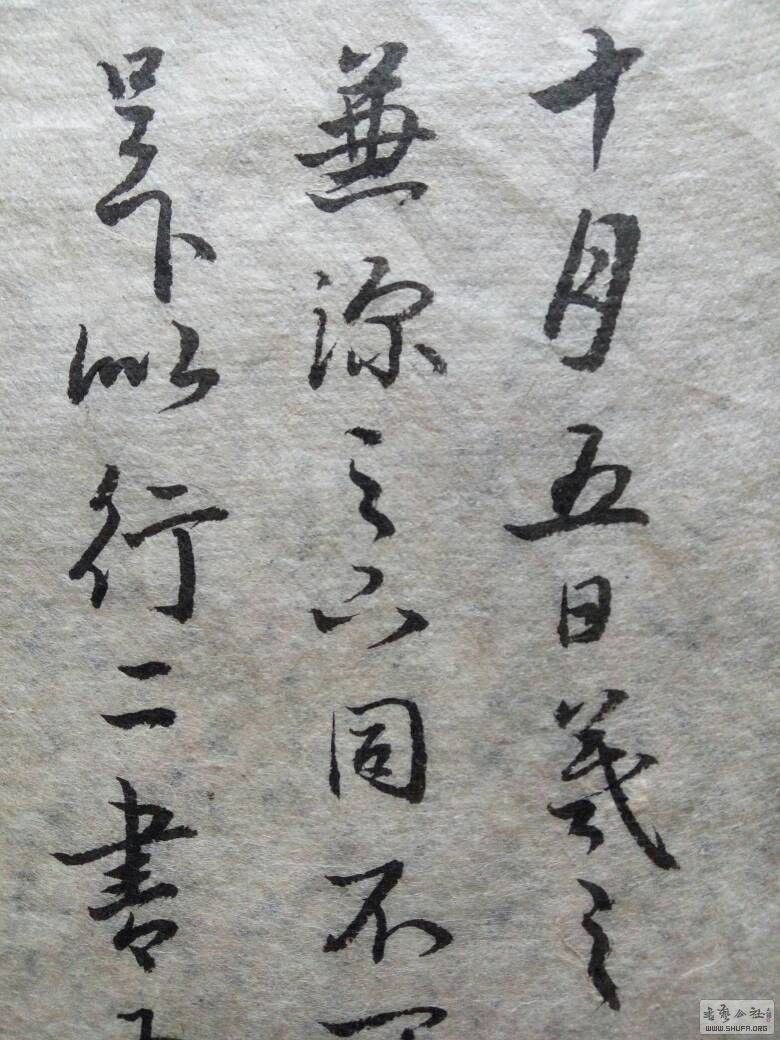 十月五日羲之
深之亦同不
足下以行二書
書藝公社
WWW.SHUFA.ORG